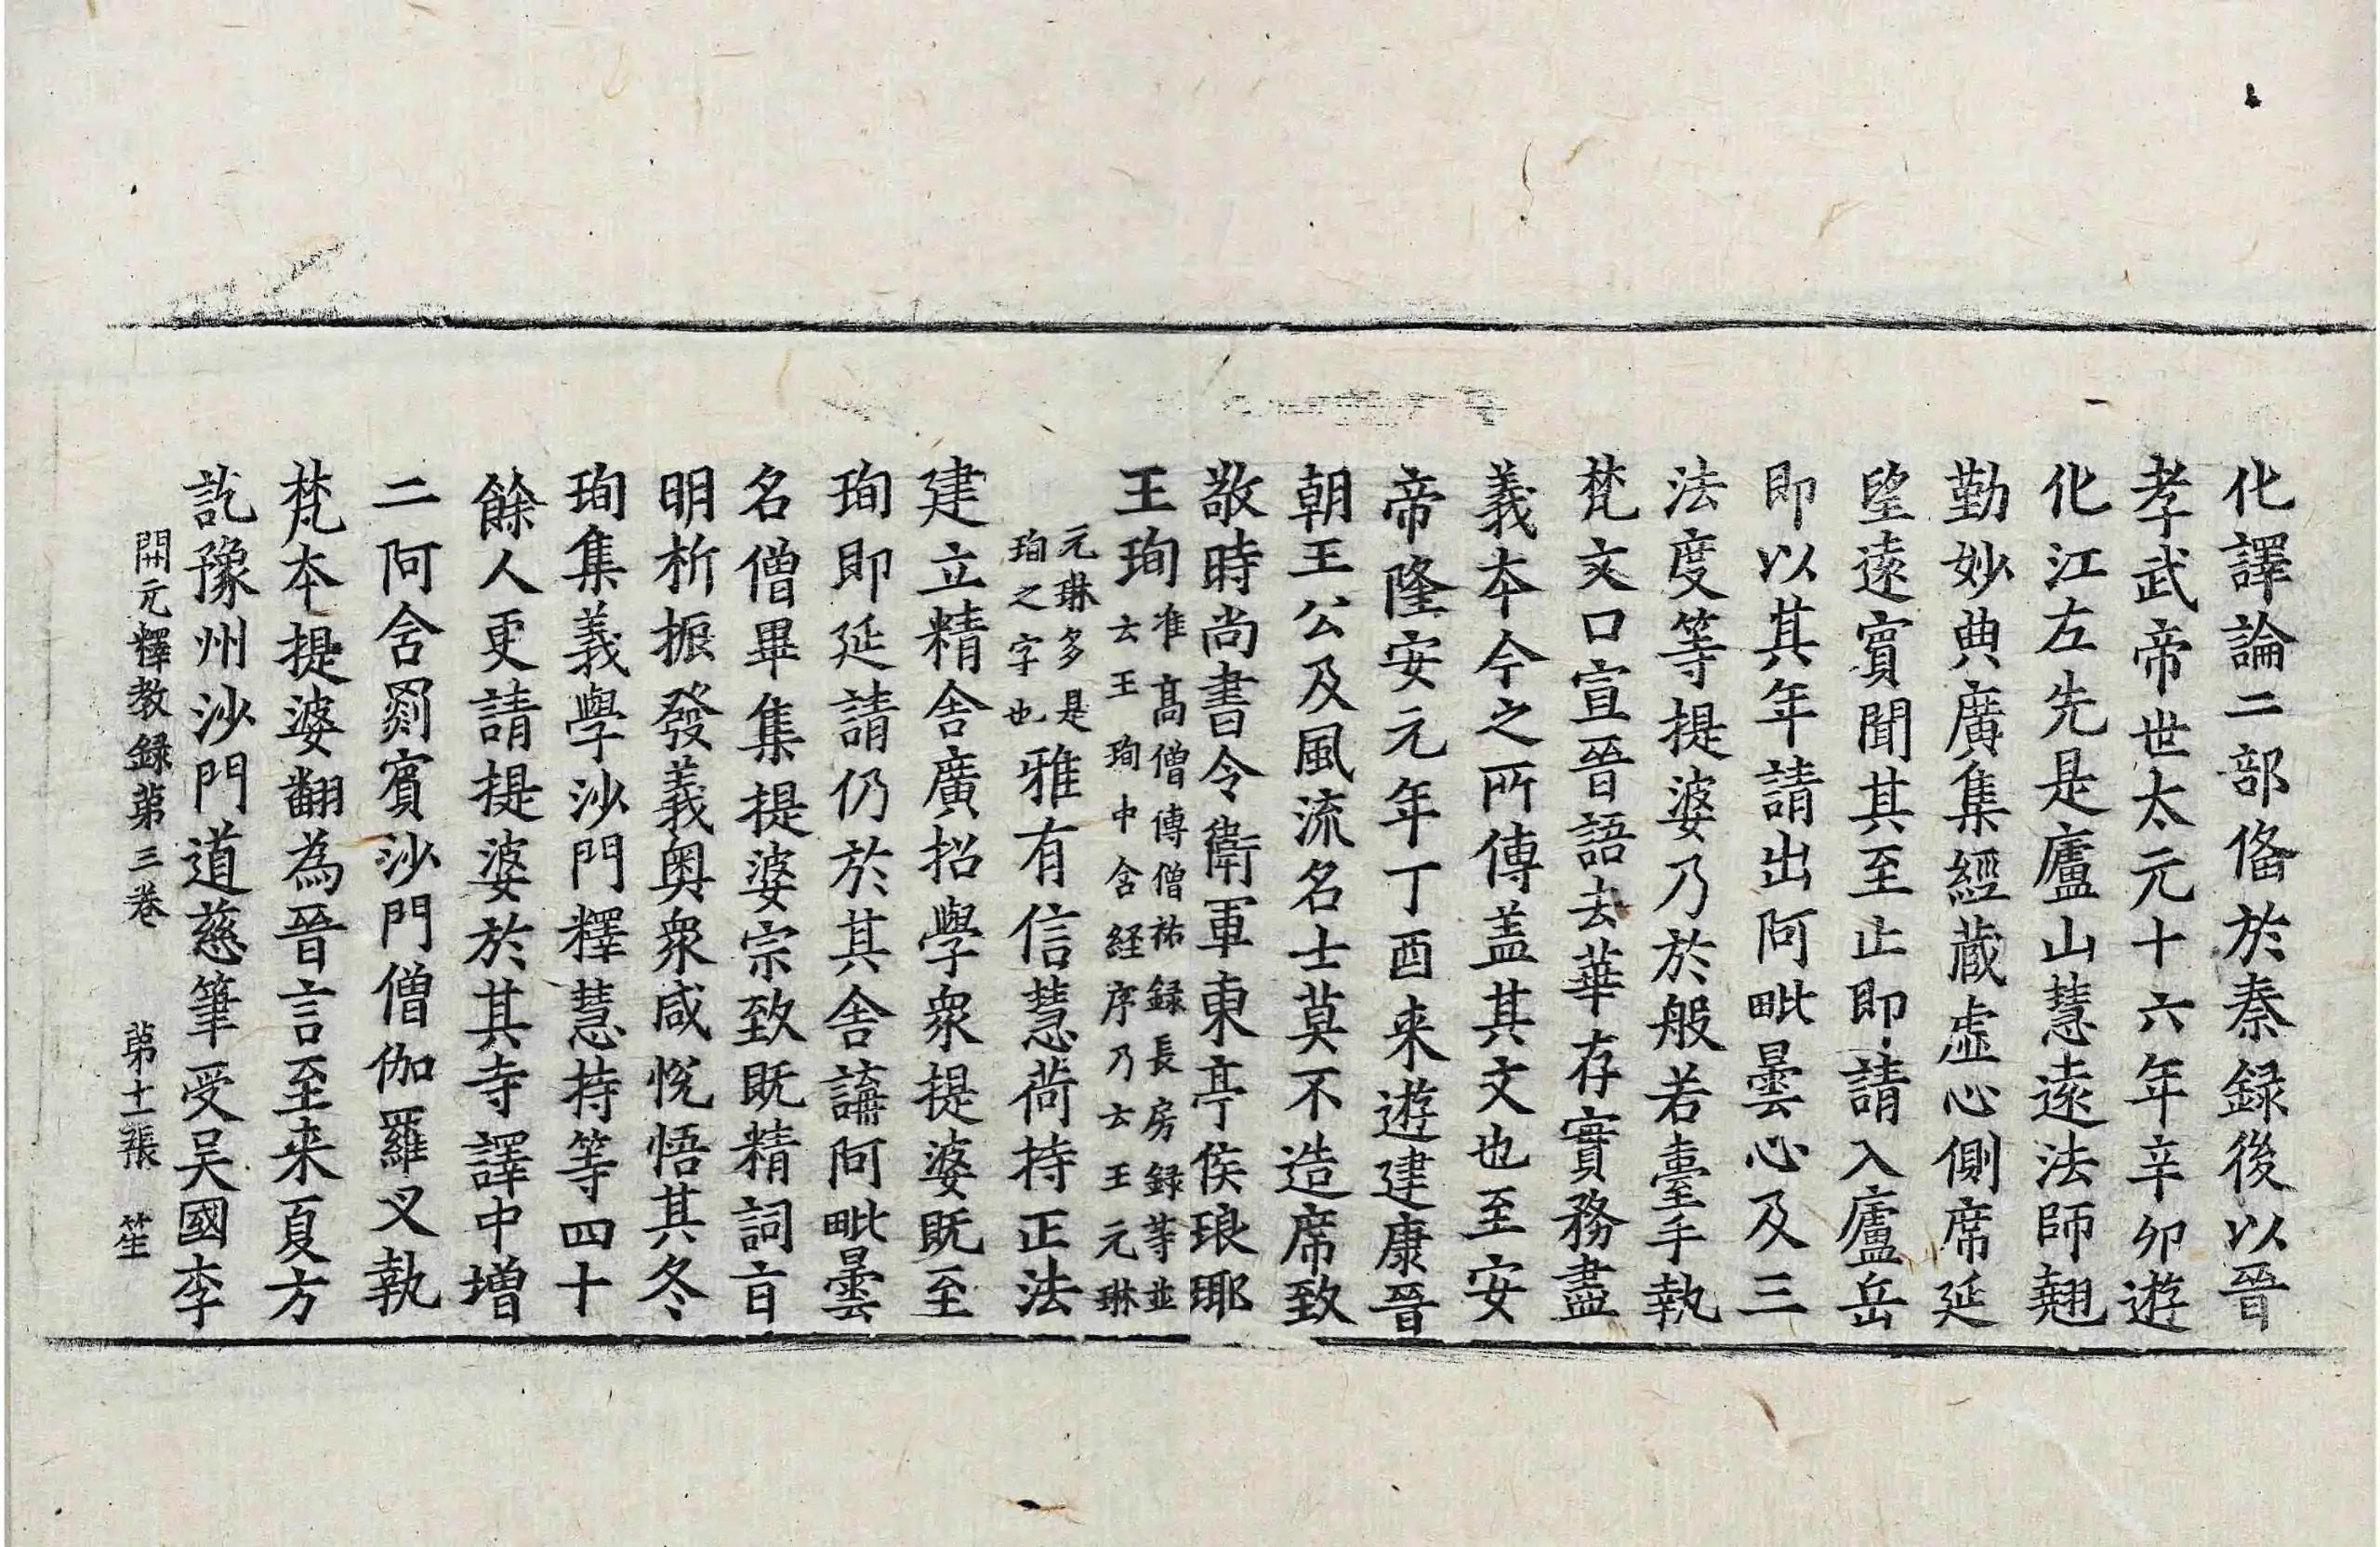 化譯論二部俻於秦録後以晉
孝武帝世太元十六年辛卯遊
化江左先是廬山慧遠法師翹
勤妙典廣集經藏虛心側席延
望遠賓聞其至止即請入廬岳
即以其年請出阿毗曇心及三
法度等提婆乃於般若臺手執
梵文口宣晉語去華存實務盡
義本今之所傳盖其文也至安
帝隆安元年丁酉来遊建康晉
朝王公及風流名士莫不造席致
敬時尚書令衛軍東亭侯琅瑘
王珣准高僧傳僧祐録長房録等並
云王珣中含経序乃云王元琳
元琳多是
珣之字也雅有信慧荷持正法
建立精舍廣招學衆提婆既至
珣即延請仍於其舍講阿毗曇
名僧畢集提婆宗致既精詞旨
明析振發義奧衆咸悅悟其冬
珣集義學沙門釋慧持等四十
餘人更請提婆於其寺譯中增
二阿含罽賓沙門僧伽羅叉執
梵本提婆翻為晉言至来夏方
訖豫州沙門道慈筆受吴國李
開元釋教録第三卷 第十二張 笙